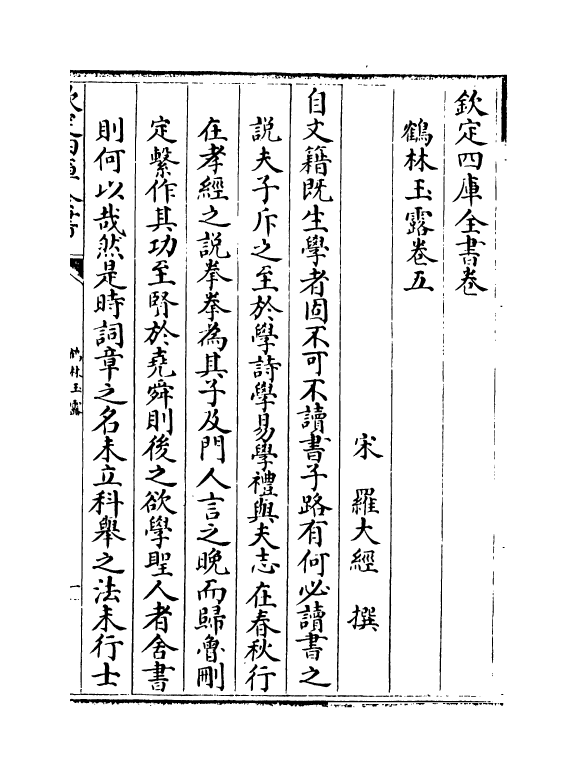 欽定四庫全書卷
鶴林玉露卷五
宋 羅大經 撰
自文籍既生學者固不可不讀書子路有何必讀書之
説夫子斥之至於學詩學易學禮與夫志在春秋行
在孝經之説拳拳為其子及門人言之晚而歸魯刪
定繫作其功至賢於堯舜則後之欲學聖人者舍書
則何以哉然是時詞章之名未立科舉之法未行士
欽定四庫全書
鶴林玉露
一